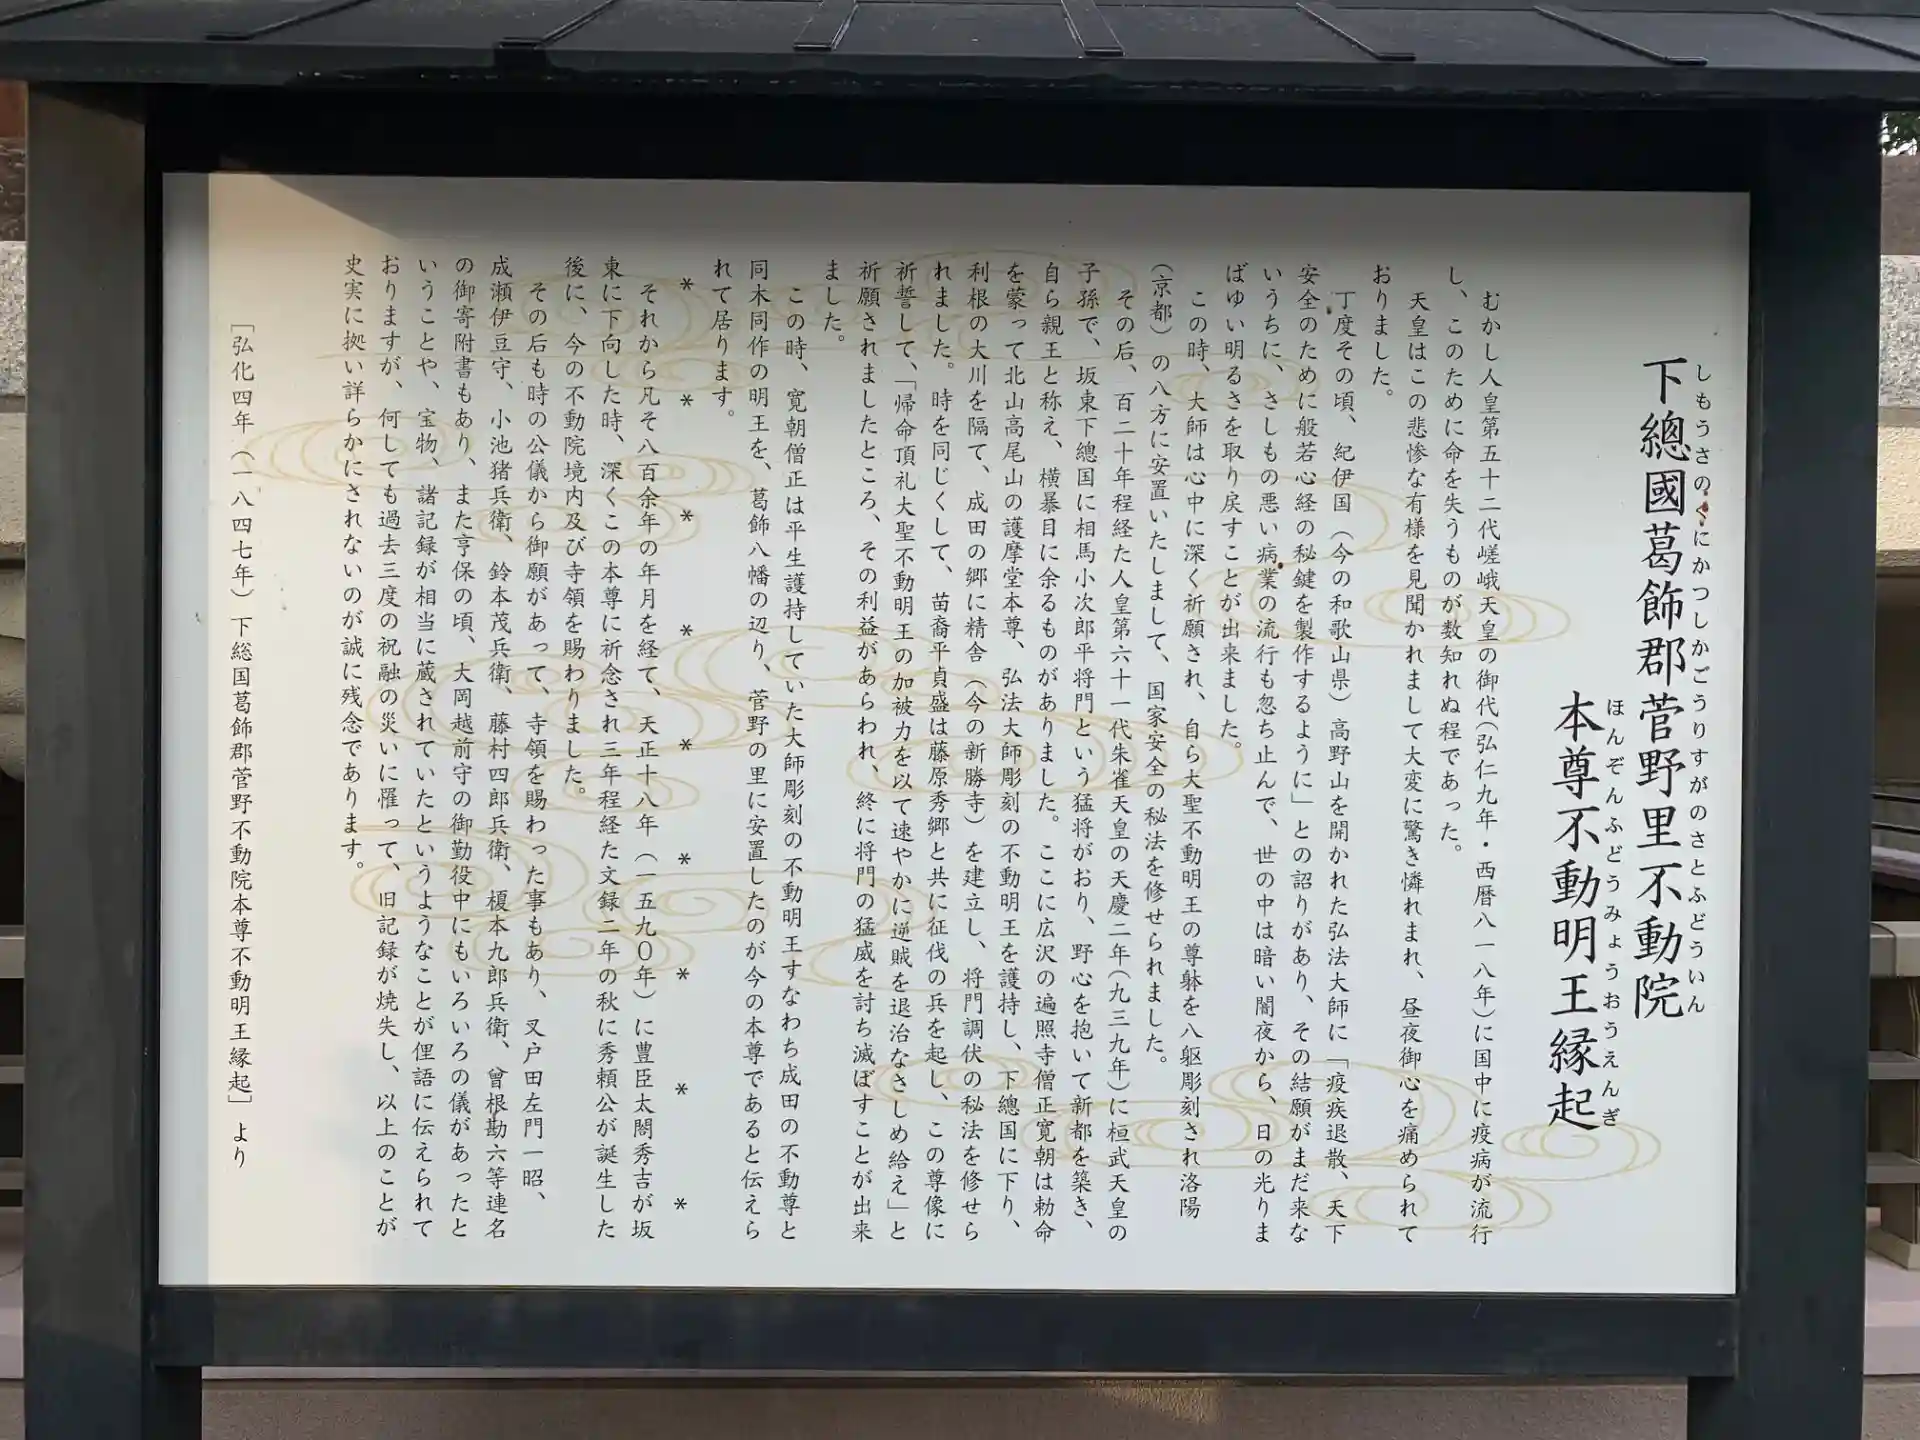 しもうさのくにかつしかごうりすがのさとふどういん
下總國葛飾郡菅野里不動院
ほんぞんふどうみょうおうえんぎ
本尊不動明王縁起
むかし人皇第五十二代嵯峨天皇の御代(弘仁九年・西暦八一八年)に国中に疫病が流行
し、このために命を失うものが数知れぬ程であった。
天皇はこの悲惨な有様を見聞かれまして大変に驚き憐れまれ、昼夜御心を痛められて
おりました。
丁度その頃、紀伊国(今の和歌山県)高野山を開かれた弘法大師に「疫疾退散、天下
安全のために般若心経の秘鍵を製作するように」との詔りがあり、その結願がまだ来な
いうちに、さしもの悪い病業の流行も忽ち止んで、世の中は暗い闇夜から、日の光りま
ばゆい明るさを取り戻すことが出来ました。
この時、大師は心中に深く祈願され、自ら大聖不動明王の尊躰を八躯彫刻され洛陽
(京都)の八方に安置いたしまして、国家安全の秘法を修せられました。
その后、百二十年程経た人皇第六十一代朱雀天皇の天慶二年(九三九年)に桓武天皇の
子孫で、坂東下總国に相馬小次郎平将門という猛将がおり、野心を抱いて新都を築き、
自ら親王と称え、横暴目に余るものがありました。ここに広沢の遍照寺僧正寛朝は勅命
を蒙って北山高尾山の護摩堂本尊、弘法大師彫刻の不動明王を護持し、下總国に下り、
利根の大川を隔て、成田の郷に精舎(今の新勝寺)を建立し、将門調伏の秘法を修せら
れました。時を同じくして、苗裔平貞盛は藤原秀郷と共に征伐の兵を起し、この尊像に
祈誓して、「帰命頂礼大聖不動明王の加被力を以て速やかに逆賊を退治なさしめ給え」と
祈願されましたところ、その利益があらわれ、終に将門の猛威を討ち滅ぼすことが出来
ました。
この時、寛朝僧正は平生護持していた大師彫刻の不動明王すなわち成田の不動尊と
同木同作の明王を、葛飾八幡の辺り、菅野の里に安置したのが今の本尊であると伝えら
れて居ります。
* * * * * * * * *
それから凡そ八百余年の年月を経て、天正十八年(一五九〇年)に豊臣太閤秀吉が坂
東に下向した時、深くこの本尊に祈念され三年程経た文録二年の秋に秀頼公が誕生した
後に、今の不動院境内及び寺領を賜わりました。
その后も時の公儀から御願があって、寺領を賜わった事もあり、又戸田左門一昭、
成瀬伊豆守、小池猪兵衛、鈴本茂兵衛、藤村四郎兵衛、榎本九郎兵衛、曾根勘六等連名
の御寄附書もあり、また亨保の頃、大岡越前守の御勤役中にもいろいろの儀があったと
いうことや、宝物、諸記録が相当に蔵されていたというようなことが俚語に伝えられて
おりますが、何しても過去三度の祝融の災いに罹って、旧記録が焼失し、以上のことが
史実に拠い詳らかにされないのが誠に残念であります。
［弘化四年(一八四七年)下総国葛飾郡菅野不動院本尊不動明王縁起］より